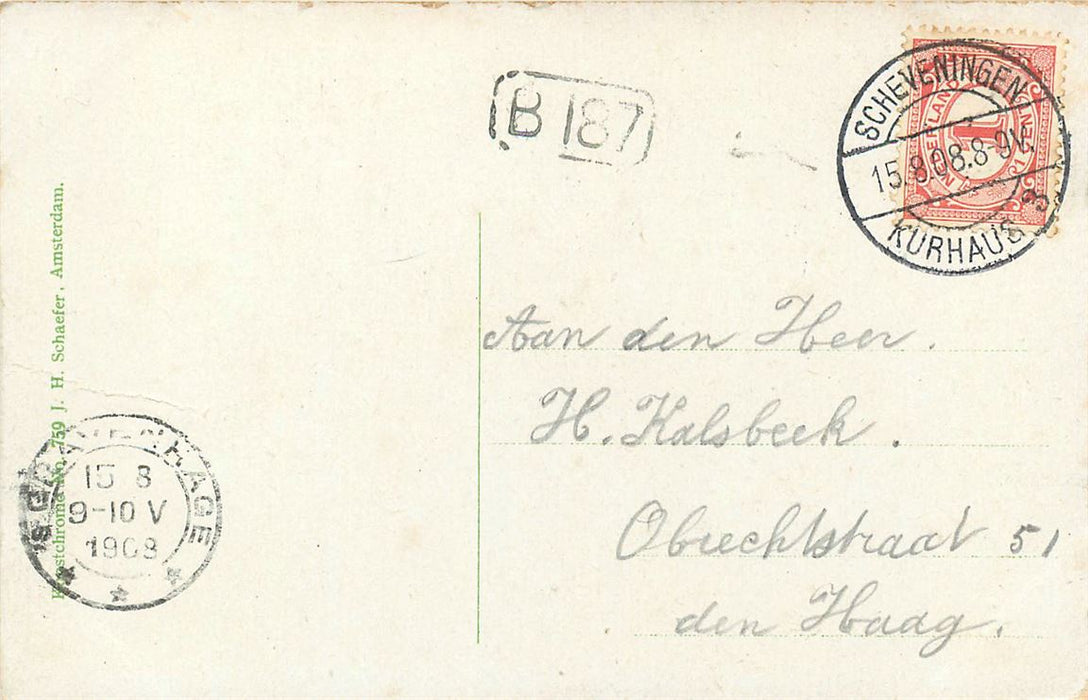 B 187
SCHEVENINGEN
15.8.08.8-9V.
KURHAUS 3
NEDERLAND
1
Aan den Heer.
H. Kalsbeek.
Obrechtstraat 51
den Haag.
No. 759 J. H. Schaefer, Amsterdam.
'S GRAVENHAGE
15 8
9-10 V
1908